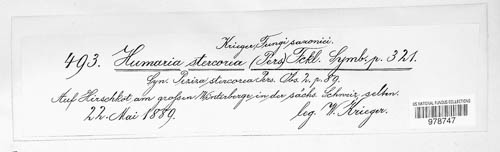 Krieger, Fungi saxonici.
493. Humaria stercorea (Pers) Fckl. Symb. p. 321.
Syn. Peziza stercorea Pers. Obs. 2, p. 89.
Auf Hirschkot am großen Winterberge in der sächs. Schweiz selten.
22. Mai 1889. leg. W. Krieger.
US NATIONAL FUNGUS COLLECTIONS
978747